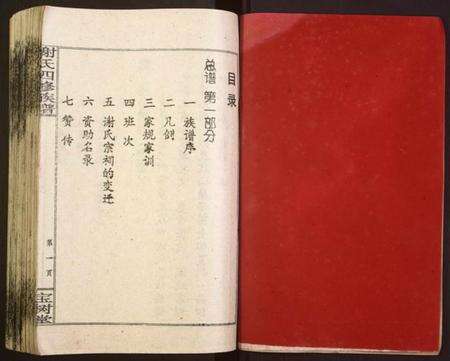 目录
总谱 第一部分
一 族谱序
二 凡例
三 家规家训
四 班次
五 谢氏宗祠的变迁
六 资助名录
七 赞传
谢氏四修族谱
第一页
宝树堂